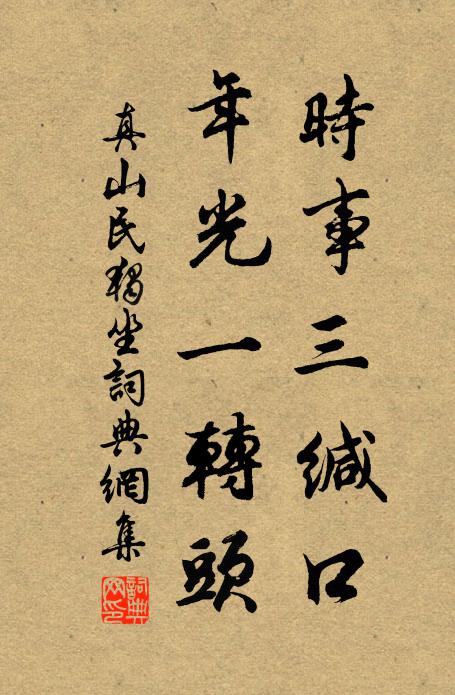 時事三緘口
年光一轉頭
真山民獨坐詞典網集
詞典網印